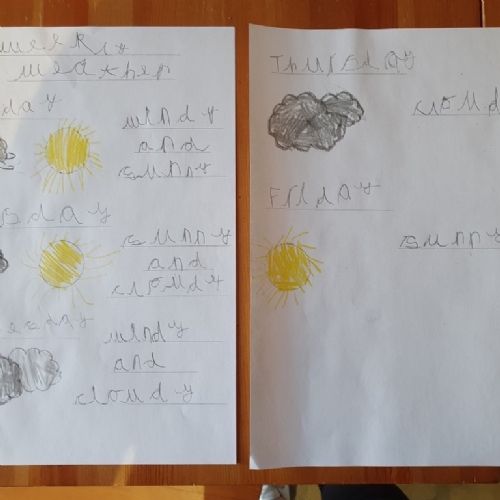 weekly
weather
day
windy
and
sunny
sday
sunny
and
cloudy
esday
windy
and
cloudy
Thursday
cloud
Friday
sunny